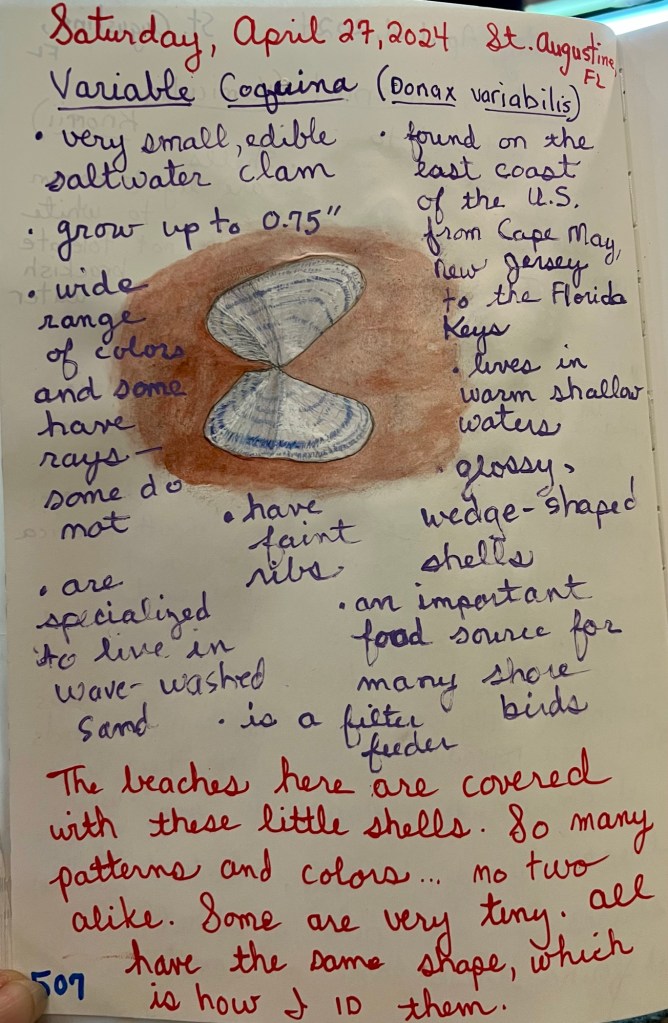 Saturday, April 27, 2024 St. Augustine, FL
Variable Coquina (Donax variabilis)
• very small, edible
saltwater clam
• grow up to 0.75"
• wide
range
of colors
and some
have
rays —
some do
not
• found on the
east coast
of the U.S.
from Cape May,
New Jersey
to the Florida
Keys
• lives in
warm shallow
waters
• glossy,
wedge-shaped
shells
• have
faint
ribs
• are
specialized
to live in
wave-washed
sand
• an important
food source for
many shore
birds
• is a filter
feeder
The beaches here are covered
with these little shells. So many
patterns and colors... no two
alike. Some are very tiny. All
have the same shape, which
is how I ID them.
507